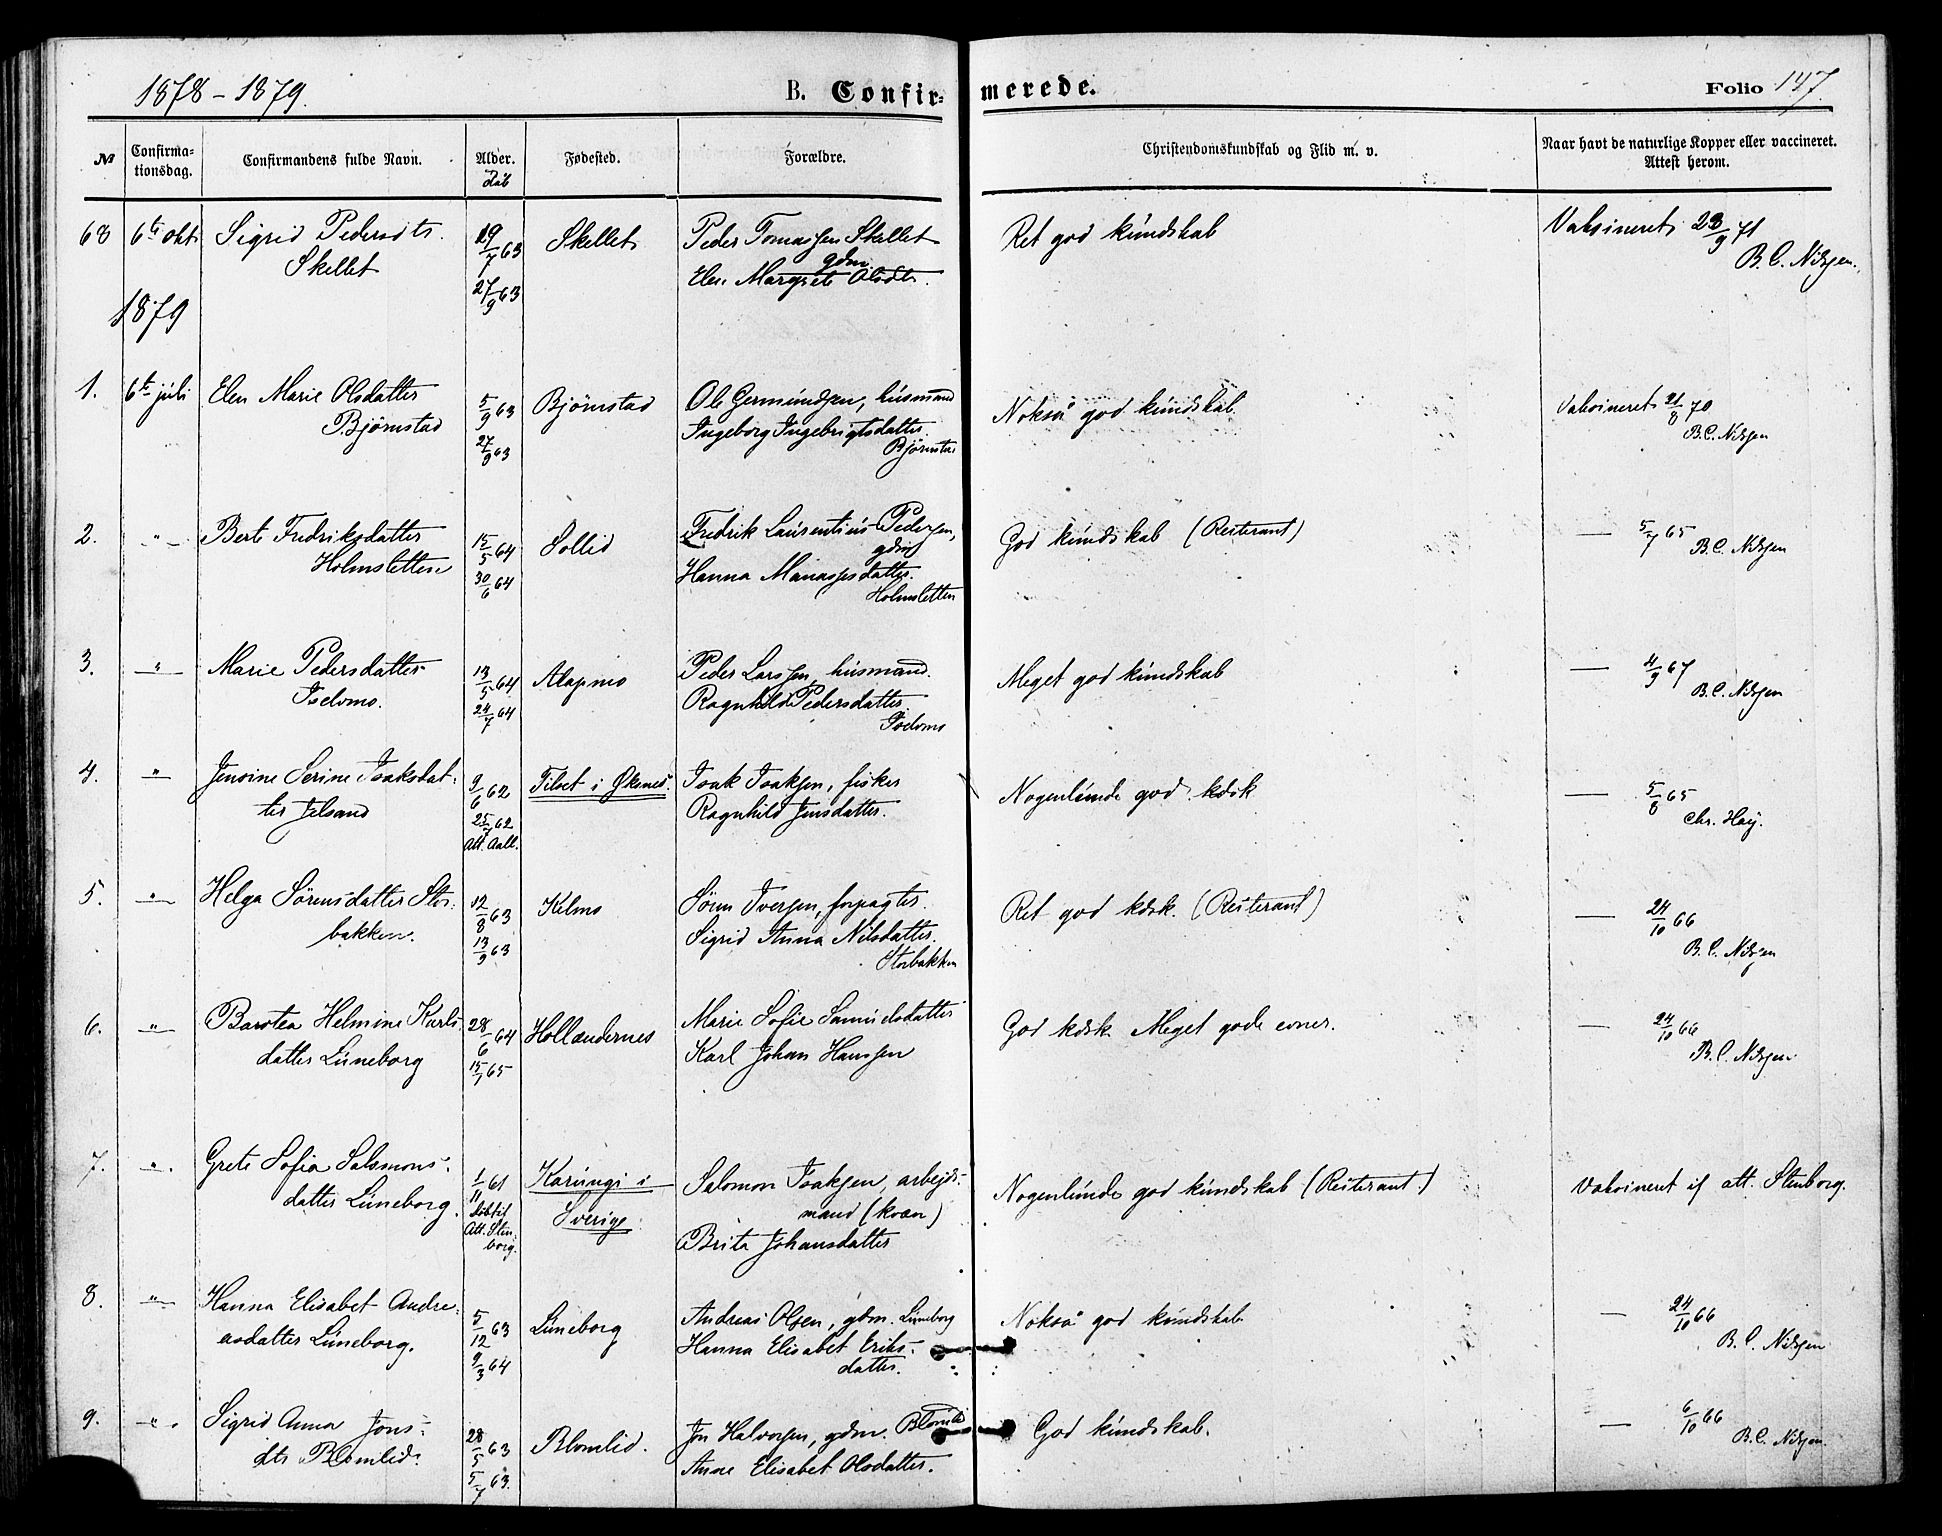 1878 - 1879.
B. Confirmerede.
Folio 147.
№
Confirma-
tionsdag.
Confirmandens fulde Navn.
Alder.
Dåb
Fødested.
Forældre.
Christendomskundskab og Flid m. v.
Naar havt de naturlige Kopper eller vaccineret.
Attest herom.
68 6te okt. Sigrid Pedersdtr.
Skellet
19/7 63
27/9 63
Skellet
Peder Tomassen Skellet
gdm.
Elen Margrete Olsdtr.
Ret god kundskab
Vaksineret 23/9 71
B. C. Nilssen.
1879
1. 6te juli Elen Marie Olsdatter
Bjørnstad
5/9 63
27/9 63
Bjørnstad
Ole Germundsen, husmand
Ingeborg Ingebrigtsdatter
Bjørnstad
Nokså god kundskab.
Vaksineret 21/8 70
B. C. Nilssen
2. -"- Berte Fredriksdatter
Holmsletten
15/5 64
30/6 64
Sollid
Fredrik Laurentius Pedersen,
gdm
Hanna Manassesdatter.
Holmsletten
God kundskab (Resterant)
— 5/7 65
B. C. Nilssen
3. -"- Marie Pedersdatter
13/5 64
24/7 64
Alapmo
Peder Larssen, husmand.
Ragnhild Pedersdatter
Meget god kundskab
— 4/9 67
B. C. Nilssen
4. -"- Jensine Serine Isaksdat-
ter
9/6 62
25/7 62
Att. Aall.
i Øksnes.
Isak Isaksen, fisker
Ragnhild Jensdatter.
Nogenlunde god kdsk
— 5/8 65
Chr. Høy.
5. -"- Helga Sørensdatter Stor-
bakken.
12/8 63
13/9 63
Kelmo
Søren Iversen, forpagter.
Sigrid Anna Nilsdatter.
Storbakken
Ret god kdsk. (Resterant)
— 24/10 66
B. C. Nilssen
6. -"- Barotea Helmine Karls-
datter Lúneborg
28/6 64
15/1 65
Hollendernes
Marie Sofie Samuelsdatter
Karl Johan Hanssen
God kdsk. Meget gode evner.
— 24/10 66
B. C. Nilssen
7. -"- Grete Sofia Salomons-
datter Lúneborg.
1/11 61
Att. Sten-
borg.
Karungi i
Sverige
Salomon Isaksen, arbejds-
mand (kvæn)
Brita Johansdatter
Nogenlunde god kundskab (Resterant.)
Vaksineret if. att. Stenborg.
8. -"- Hanna Elisabet Andre-
asdatter Lúneborg.
5/12 63
9/3 64
Lúneborg
Andreas Olsen, gdm. Lúneborg
Hanna Elisabet Eriks-
datter.
Nokså god kundskab
— 24/10 66
B. C. Nilssen
9. -"- Sigrid Anna Jons-
dtr Blomlid.
28/5 63
5/7 63.
Blomlid.
Jon Halvorsen, gdm. Blomlid
Anne Elisabet Olsdatter.
God kundskab.
— 6/10 66
B. C. Nilssen.